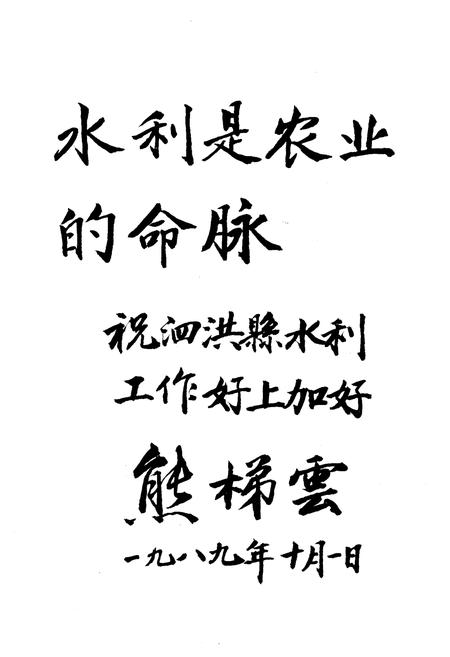 水利是农业
的命脉
祝泗洪縣水利
工作好上加好
熊梯雲
一九八九年十月一日